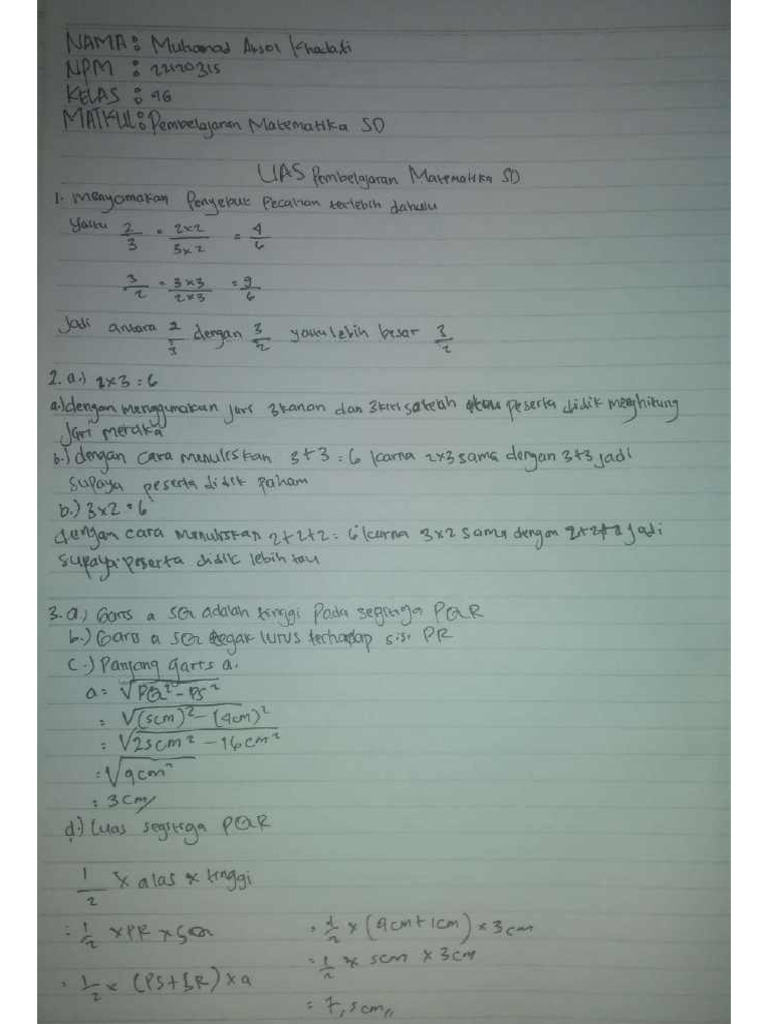 NAMA : Muhamad Aksol Khadafi
NPM : 22120315
KELAS : 4G
MATKUL : Pembelajaran Matematika SD
UAS Pembelajaran Matematika SD
1. menyamakan Penyebut Pecahan terlebih dahulu
Yaitu 2/3 = 2x2/3x2 = 4/6
3/2 = 3x3/2x3 = 9/6
Jadi antara 2/3 dengan 3/2 yaitu lebih besar 3/2
2. a.) 2x3 = 6
a.) dengan menggunakan jari 3 kanan dan 3 kiri setelah peserta didik menghitung
Jari mereka
b.) dengan cara menuliskan 3+3 = 6 karna 2x3 sama dengan 3+3 jadi
supaya peserta didik paham
b.) 3x2 = 6
dengan cara menuliskan 2+2+2 = 6 karna 3x2 sama dengan 2+2+2 jadi
supaya peserta didik lebih tau
3. a.) Garis a SQ adalah tinggi pada segitiga PQR
b.) Garis a SQ tegak lurus terhadap sisi PR
c.) Panjang garis a.
a = √PQ² - PS²
= √(5cm)² - (4cm)²
= √25cm² - 16cm²
= √9cm²
= 3cm//
d.) Luas segitiga PQR
1/2 x alas x tinggi
= 1/2 x PR x SQ
= 1/2 x (PS + SR) x a
= 1/2 x (4cm + 1cm) x 3cm
= 1/2 x 5cm x 3cm
= 7,5cm//